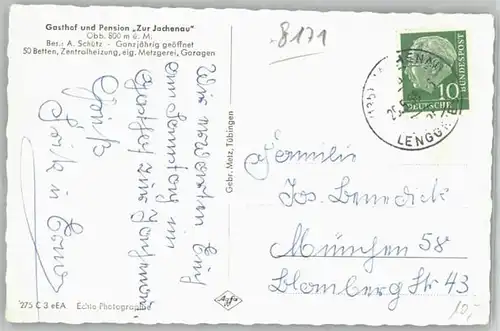 Gasthof und Pension „Zur Jachenau"
Obb. 800 m ü. M.
Bes.: A. Schütz - Ganzjährig geöffnet
50 Betten, Zentralheizung, eig. Metzgerei, Garagen
8171
DEUTSCHE
BUNDESPOST
10
LENGG
Wir erwarten Euch
am Samstag im
Gasthof zur Jachenau
Gruß
Gebr. Metz, Tübingen
Familie
Jos. Benedick
München 58
Blomberg Str 43
275 C 3 eEA Echte Photographie
Agfa
10,-